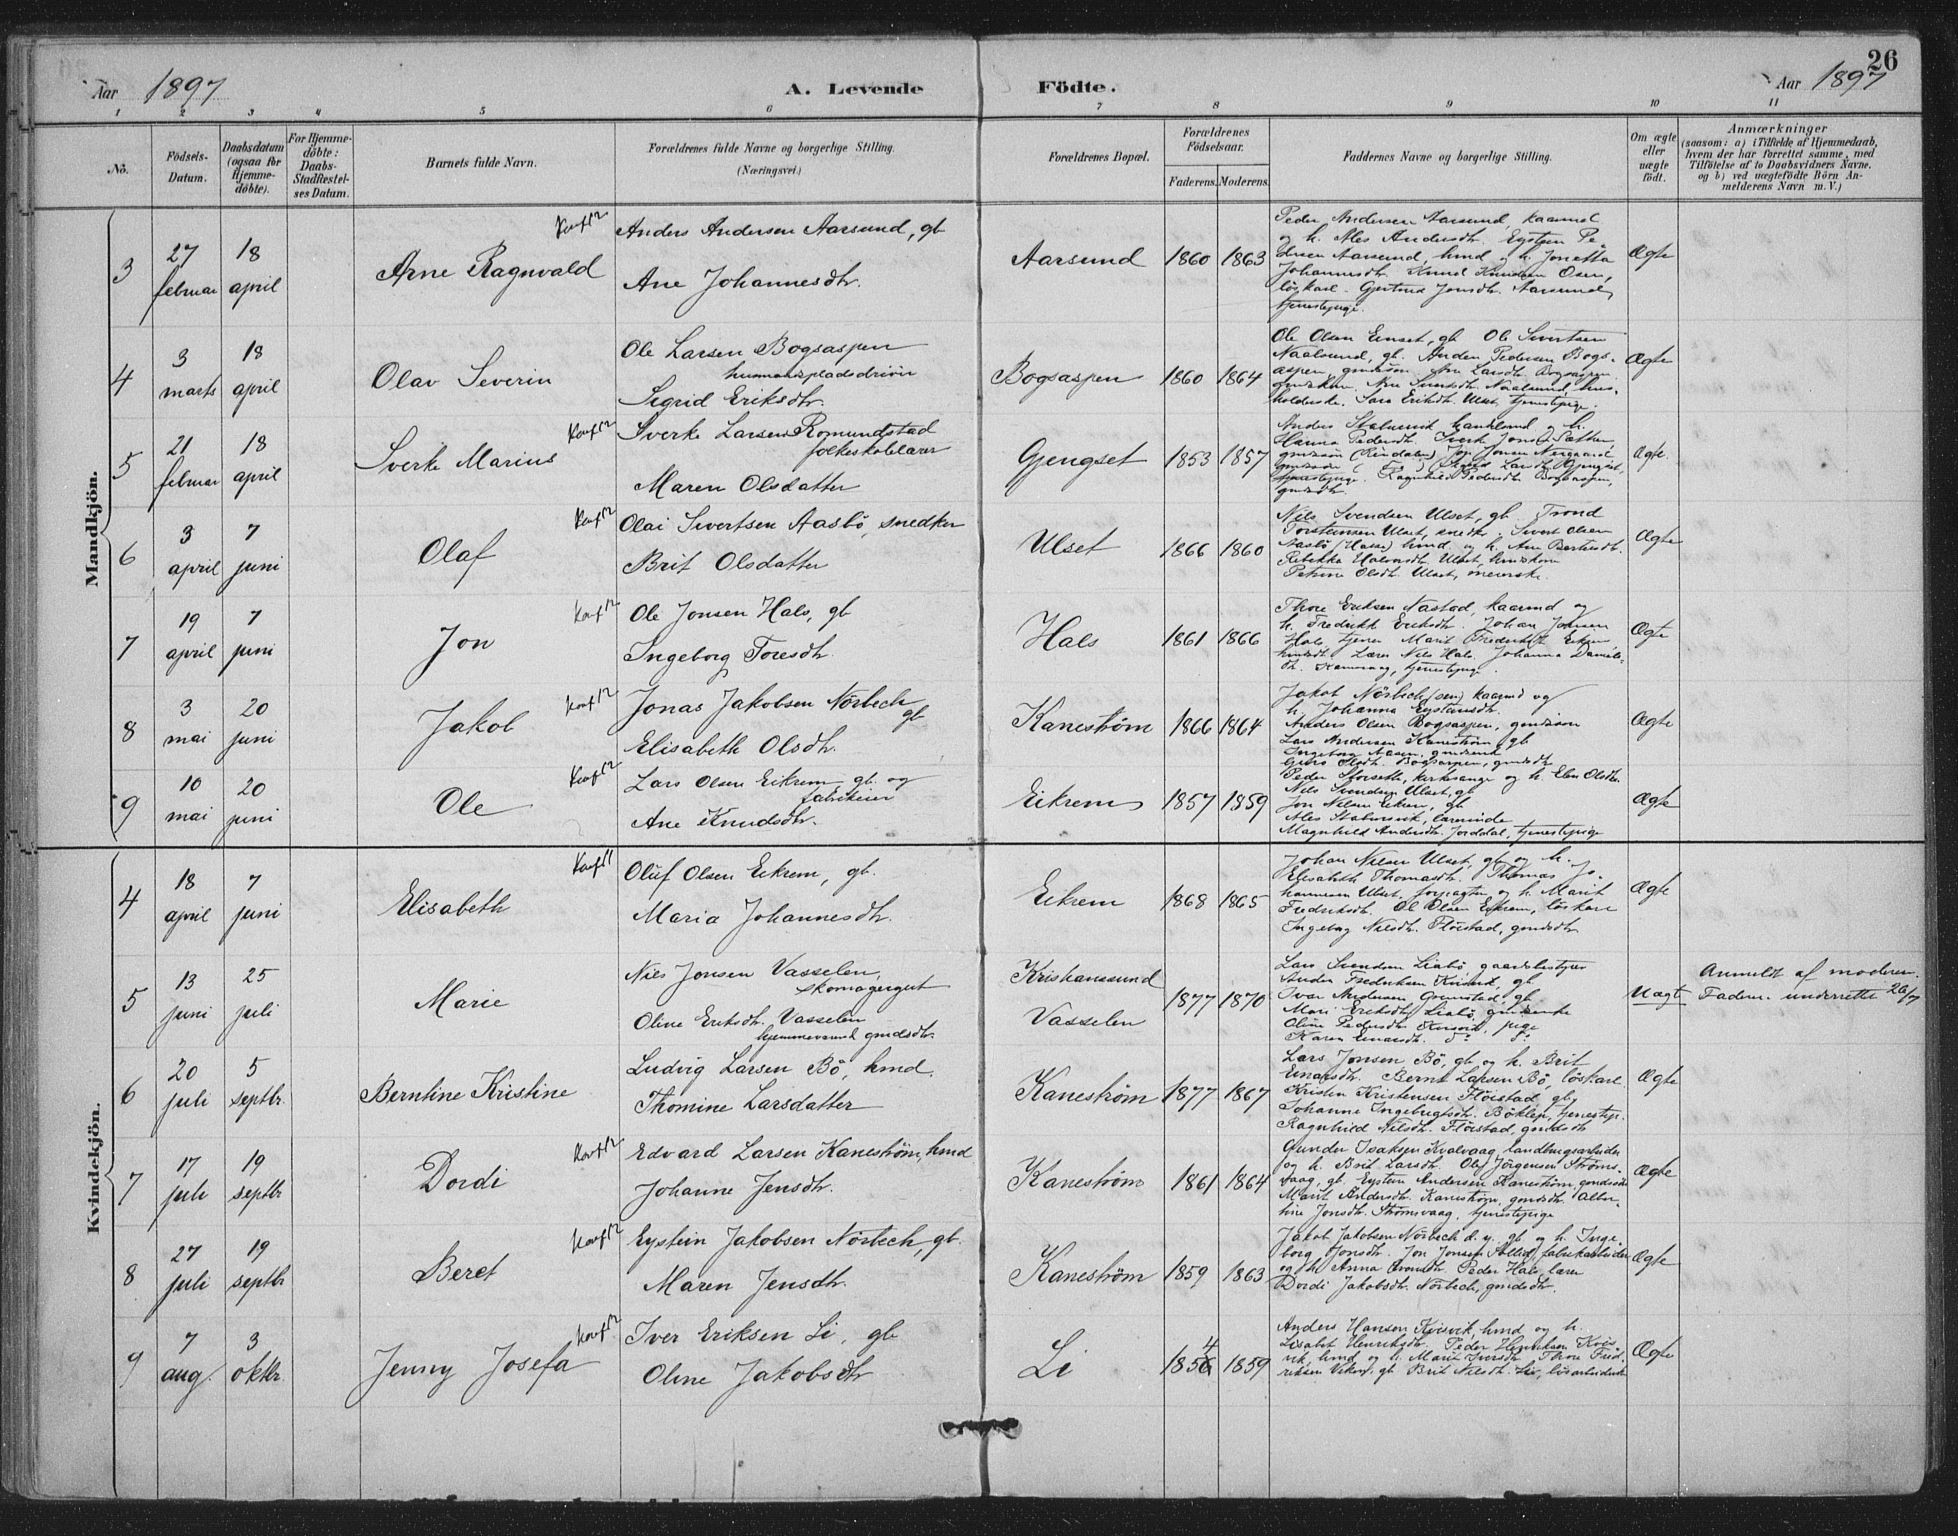 26
Aar 1897 A. Levende Födte. Aar 1897
1 2 3 4 5 6 7 8 9 10 11
No.
Födsels-Datum.
Daabsdatum (ogsaa for Hjemmedöbte).
For Hjemmedöbte: Daabs-Stadfæstelses Datum.
Barnets fulde Navn.
Forældrenes fulde Navne og borgerlige Stilling.
(Næringsvei.)
Forældrenes Bopæl.
Forældrenes Födselsaar.
Faderens. Moderens.
Faddernes Navne og borgerlige Stilling.
Om ægte eller uægte födt.
Anmærkninger
(saasom: a) i Tilfælde af Hjemmedaab, hvem der har forrettet samme, med Tilföielse af to Daabsvidners Navne, og b) ved uægtefödte Börn Anmelderens Navn m. V.)
Mandkjön.
3 27 februar 18 april Arne Ragnvald
Anders Andersen Aarsund, gb
Ane Johannesdtr.
Aarsund 1860 1863
Peder Andersen Aarsund, kaarmd
og h. Ales Andersdtr. Eystein Pe-
dersen Aarsund, hmd og h. Jonetta
Johannesdtr. Knud Knudsen Osen,
löskarl. Gjertrud Jonsdtr. Aarsund,
tjenestepige.
Ægte
4 3 marts 18 april Olav Severin
Ole Larsen Bogsaspen
husmandspladsdriver
Sigrid Eriksdtr.
Bogsaspen 1860 1864
Ole Olsen Einset, gb Ole Sivertsen
Naalsund, gb. Anders Pedersen Bogs-
aspen, gmdssön
holderske. Sara Eriksdtr. Ulset, tjenestepige.
Ægte
5 21 februar 18 april Sverke Marius
Sverke Larsen Romundstad
folkeskolelærer
Maren Olsdatter
Gjengset 1853 1857
Hanna Pedersdtr.
tjenestepige. Ragnhild Pedersdtr. Bogsaspen,
gmdsdtr.
Ægte.
6 3 april 7 juni Olaf
Olai Sivertsen Aasbö, snedker
Brit Olsdatter
Ulset 1866 1860
Nils Svendsen Ulset, gb Trond
Torstensen Ulset, snedk. Sivert Olsen
Aasbö (Halse) hmd og h. Ane Berntsdtr.
Rebekka Halvorsdtr. Ulset,
Petrine Olsdtr. Ulset, meierske.
Ægte
7 19 april 7 juni Jon
Ole Jonsen Hals, gb
Ingeborg Toresdtr.
Hals 1861 1866
Thore Eriksen Aastad, kaarmd og
h. Fredrikk Eriksdtr. Johan Johnsen
Hals, tjener Marit Fredriksdtr. Eikrem
Lærer Nils Hals. Johanna Daniels-
dtr. tjenestepige.
Ægte
8 3 mai 20 juni Jakob
Jonas Jakobsen Nörbech
gb
Elisabeth Olsdtr.
Kaneström 1866 1864
Jakob Nörbech (sen) kaarmd og
h. Johanna Eysteinsdtr.
Anders Olsen Bogsaspen, gmdssön
Lars Andersen Kaneström, gb
Bogsaspen, gmdsdtr
Ægte
9 10 mai 20 juni Ole
Lars Olsen Eikrem gb. og
fabrikeier
Ane Knudsdtr.
Eikrem 1857 1859
Peder Storseth, kirkesanger og h. Elen Olsdtr.
Nils Svendsen Ulset, gb
Jon Nilsen Eikrem, gb
Ales Stabursvik, lærerinde
Magnhild Andersdtr. Jorddal, tjenestepige
Ægte
Kvindekjön.
4 18 april 7 juni Elisabeth
Oluf Olsen Eikrem, gb.
Maria Johannesdtr.
Eikrem 1868 1865
Johan Nilsen Ulset, gb og h.
Elisabeth Thomasdtr. Thomas Jo-
hannesen Ulset, forpagter og h. Marit
Fredriksdtr. Ol Olsen Eikrem, löskarl
Ingeborg Nilsdtr. Flöistad, gmdsdtr
Ægte
5 13 juni 25 juli Marie
Nils Jonsen Vasselen,
skomagergut
Oline Eriksdtr. Vasselen
hjemmeværende gmdsdtr.
Kristianssund
Vasselen
1877 1870
Lars Svendsen Liabö, gaardsbestyrer
Anders Fredriksen Kvisvik, gb
Ivar Andersen Grimstad, gb
Mari Eriksdtr. Liabö,
Oline Pedersdtr. Kvisvik, pige
Karen Einarsdtr. do do
Uægt
Anmeldt af moderen.
Faderen underrettet 26/7
6 20 juli 5 septbr. Berntine Kristine
Ludvig Larsen Bö, hmd.
Thomine Larsdatter
Kaneström 1877 1867
Lars Jonsen Bö, gb og h. Brit
Einarsdtr. Bernt Larsen Bö, löskarl.
Kristen Kristensen Flöistad, gb
Johanne Ingebrigtsdtr. Böklep, tjenestep.
Ragnhild Nilsdtr. Flöistad, gmdsdtr
Ægte
7 17 juli 19 septbr Dordi
Edvard Larsen Kaneström, hmd
Johanne Jensdtr.
Kaneström 1861 1864
Gunder Isaksen Kvalvaag, landbrugsarbeider
og h. Brit Larsdtr. Ole Jörgensen Ströms-
vaag, gb. Eystein Andersen Kaneström, gmdssön
Marit Andersdtr. Kaneström, gmdsdtr. Alber-
tine Jonsdtr. Strömsvaag, tjenestepige
Ægte
8 27 juli 19 septbr Beret
Eystein Jakobsen Nörbech, gb.
Maren Jensdtr.
Kaneström 1859 1863
Jakob Jakobsen Nörbech d. y. gb og h. Inge-
borg Jonsdtr. Jon Jonsen fabrikarbeider
og h. Anna Peder Hals, lærer
Dordi Jakobsdtr. Nörbech, gmdsdtr.
Ægte
9 7 aug. 3 oktbr. Jenny Josefa
Iver Eriksen Li, gb
Oline Jakobsdtr
Li 1854 1859
Anders Hansen Kvisvik, hmd og h.
Lisabet Henriksdtr. Peder Henriksen Kvis-
vik, hmd og h. Marit Iversdtr. Thore Fred-
riksen gb Brit Nilsdtr. Li, lösarbeiderske
Ægte